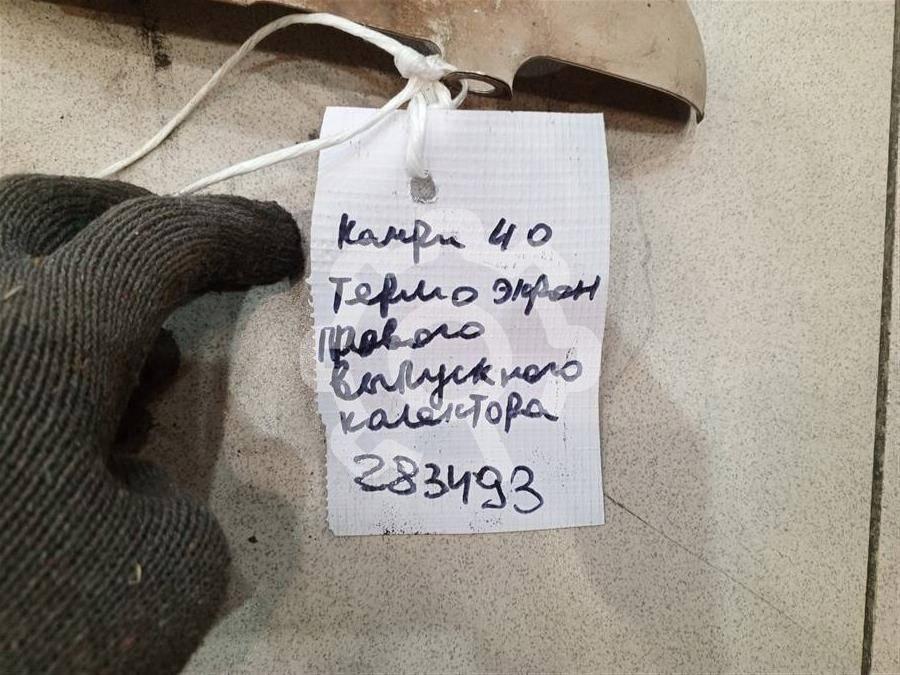 Камри 40
Термо экран
правого
выпускного
колектора
283493